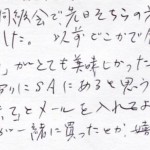 同級会で先日そちらの方
した。以前どこかで
」がとても美味しかった
りにSAにあると思う
とメールを入れるよ
が一緒に買ったとか、嬉